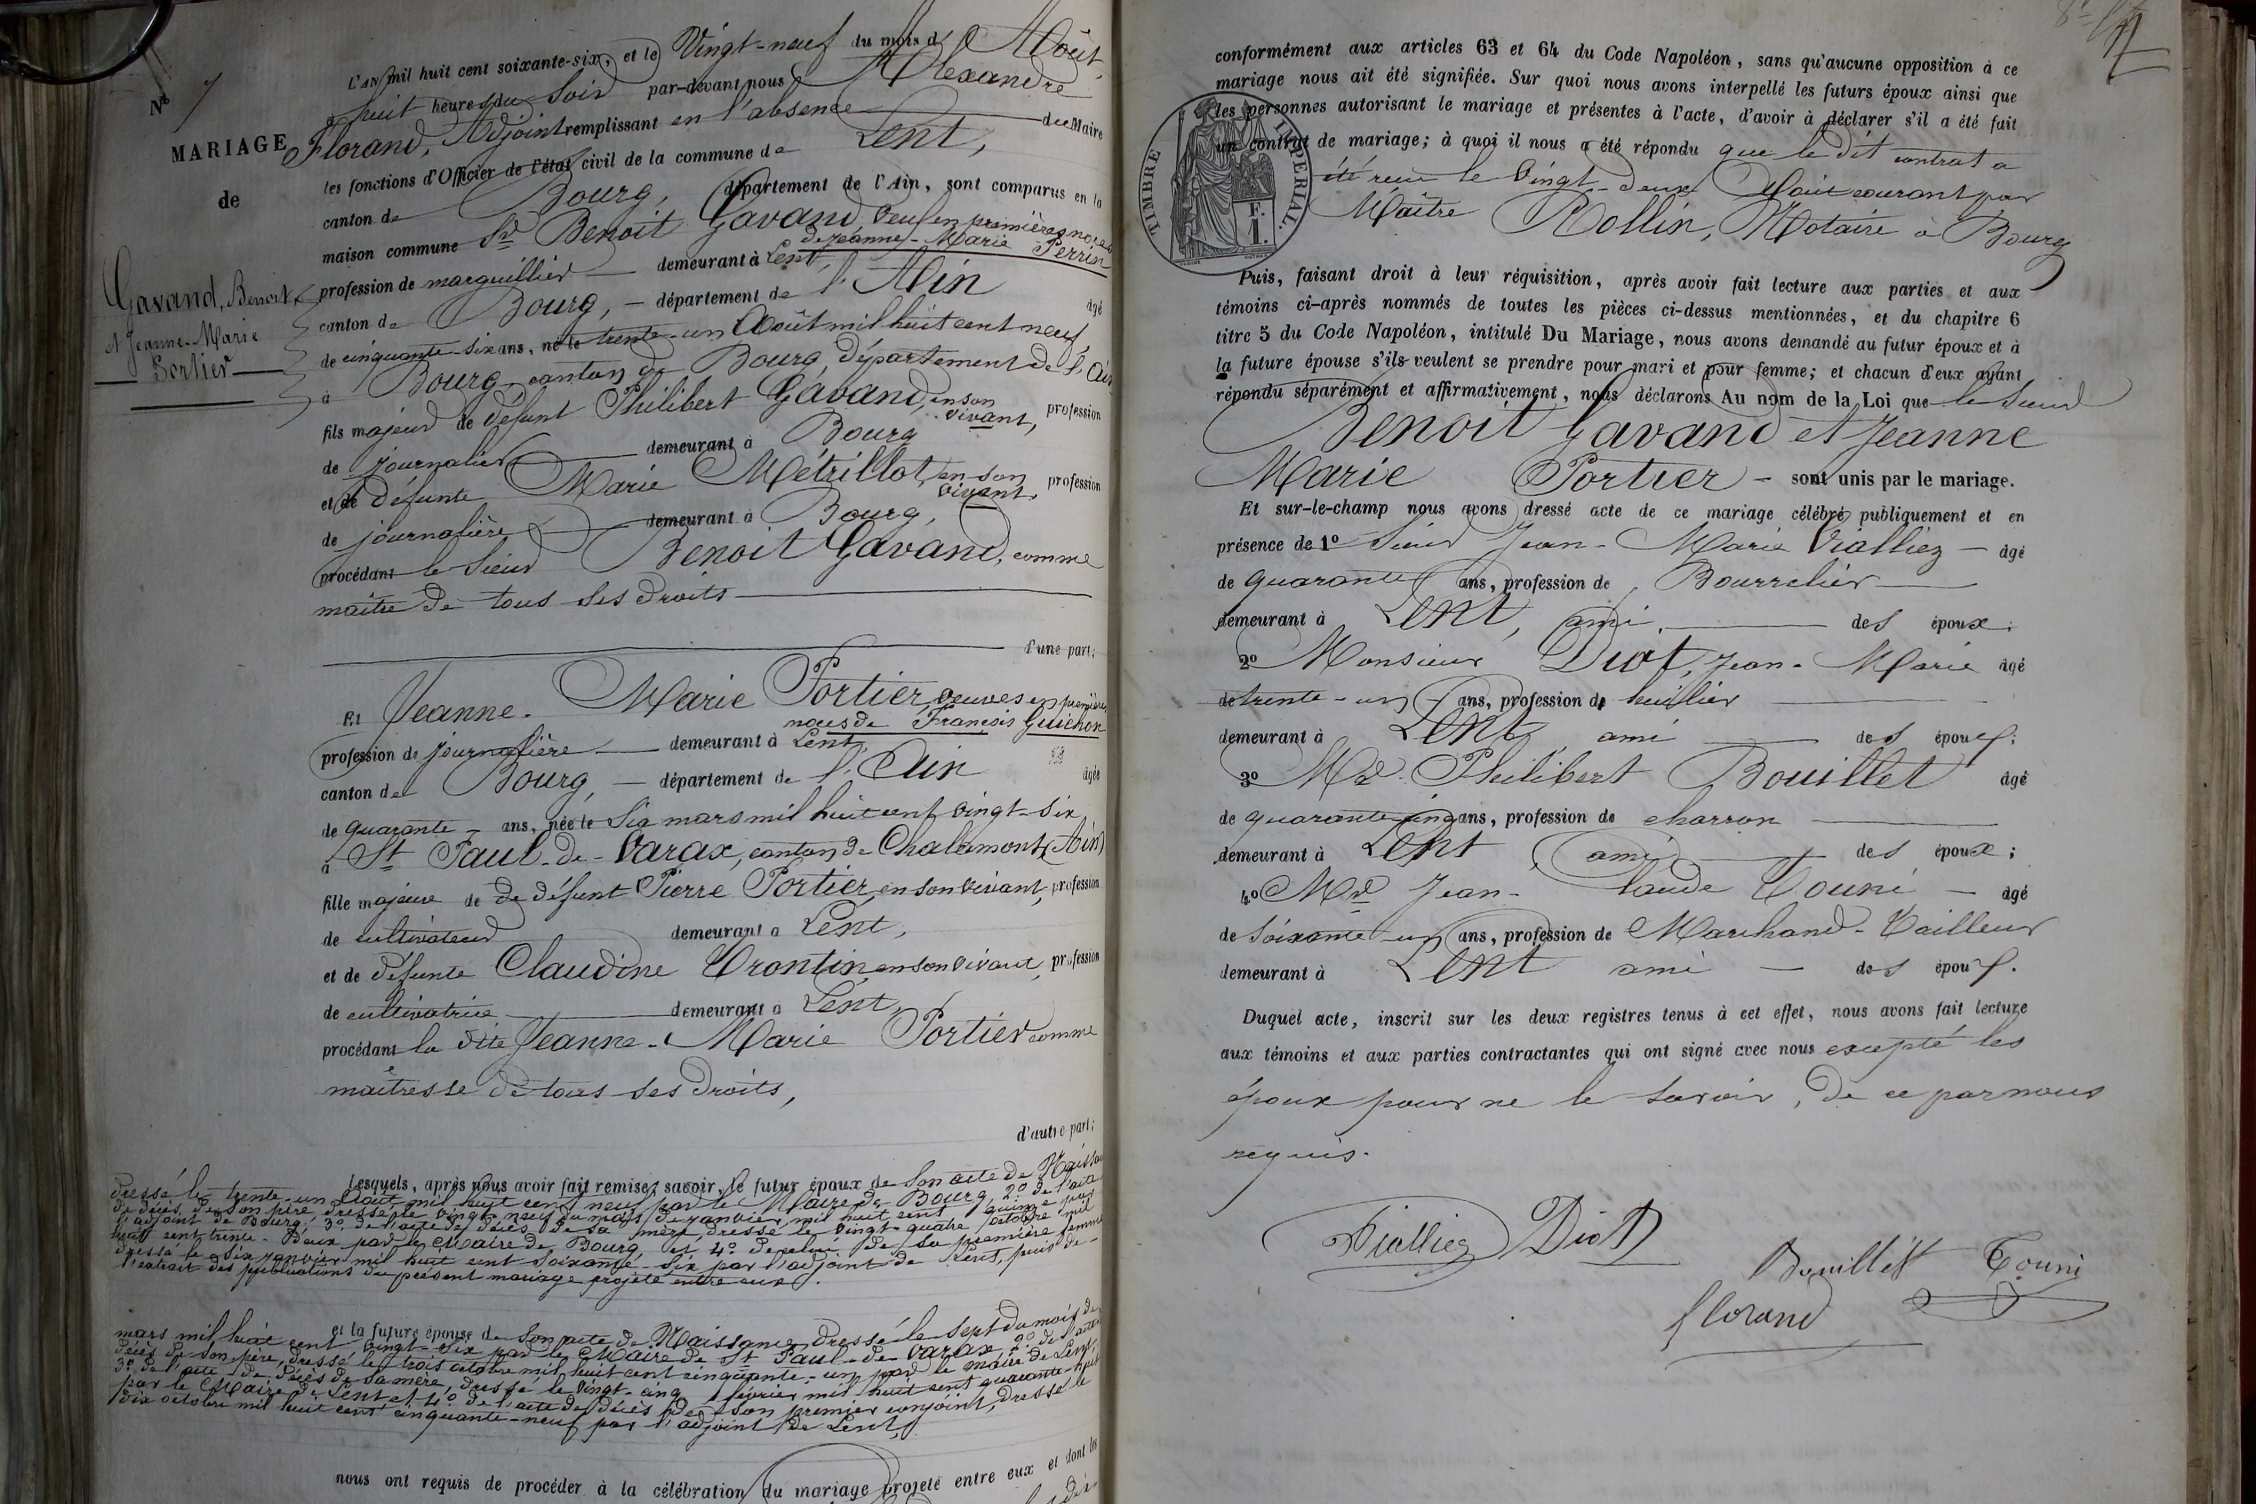 No 7
MARIAGE
de
Gavand, Benoit
et Jeanne-Marie
Portier
L'AN mil huit cent soixante-six, et le Vingt-neuf du mois d'Août,
à huit heures du Soir par-devant nous Alexandre
Florand, Adjoint remplissant en l'absence du Maire
les fonctions d'Officier de l'état civil de la commune de Lent,
canton de Bourg, département de l'Ain, sont comparus en la
maison commune Sr Benoit Gavand, Veuf en premières noces
de Jeanne-Marie Perrin
profession de marguillier demeurant à Lent,
canton de Bourg, département de l'Ain âgé
de cinquante-six ans, né le trente-un Août mil huit cent neuf,
à Bourg, canton de Bourg, département de l'Ain
fils majeur de défunt Philibert Gavand, en son vivant, profession
de journalier demeurant à Bourg
et de défunte Marie Métrillot, en son vivant, profession
de journalière demeurant à Bourg,
procédant le Sieur Benoit Gavand, comme
maître de tous ses droits
d'une part;
Et Jeanne-Marie Portier, veuve en premières
noces de François Guichon
profession de journalière demeurant à Lent,
canton de Bourg, département de l'Ain âgée
de quarante ans, née le Six mars mil huit cent vingt-six
à St Paul-de-Varax, canton de Chalamont (Ain)
fille majeure de de défunt Pierre Portier, en son vivant, profession
de cultivateur demeurant à Lent,
et de défunte Claudine Trontin, en son vivant, profession
de cultivatrice demeurant à Lent,
procédant la dite Jeanne-Marie Portier comme
maîtresse de tous ses droits,
d'autre part;
Lesquels, après nous avoir fait remise, savoir, le futur époux de Son acte de Naissance
dressé le trente-un Août mil huit cent neuf par le Maire de Bourg, 2o de l'acte
de décès de son père, dressé le vingt-neuf du mois de janvier mil huit cent quinze par
l'adjoint de Bourg, 3o de l'acte de décès de sa mère, dressé le vingt-quatre octobre mil
huit cent trente-deux par le Maire de Bourg, et 4o de celui de sa première femme
dressé le six janvier mil huit cent soixante-six par l'adjoint de Lent, puis de
l'extrait des publications du présent mariage projeté entre eux.
et la future épouse de Son acte de Naissance, dressé le Sept du mois de
mars mil huit cent vingt-six par le Maire de St Paul-de-Varax, 2o de l'acte de
décès de son père, dressé le trois octobre mil huit cent cinquante-un par le maire de Lent,
3o de l'acte de décès de sa mère, dressé le Vingt-cinq février mil huit cent quarante-huit
par le Maire de Lent et 4o de l'acte de décès de son premier conjoint, dressé le
dix octobre mil huit cent cinquante-neuf par l'adjoint de Lent,
nous ont requis de procéder à la célébration du mariage projeté entre eux et dont les
conformément aux articles 63 et 64 du Code Napoléon, sans qu'aucune opposition à ce
mariage nous ait été signifiée. Sur quoi nous avons interpellé les futurs époux ainsi que
les personnes autorisant le mariage et présentes à l'acte, d'avoir à déclarer s'il a été fait
un contrat de mariage; à quoi il nous a été répondu que le dit contrat a
été reçu le Vingt-deux Août courant par
Maître Rollin, Notaire à Bourg
TIMBRE IMPÉRIAL.
Puis, faisant droit à leur réquisition, après avoir fait lecture aux parties et aux
témoins ci-après nommés de toutes les pièces ci-dessus mentionnées, et du chapitre 6
titre 5 du Code Napoléon, intitulé Du Mariage, nous avons demandé au futur époux et à
la future épouse s'ils veulent se prendre pour mari et pour femme; et chacun d'eux ayant
répondu séparément et affirmativement, nous déclarons Au nom de la Loi que le Sieur
Benoit Gavand et Jeanne
Marie Portier - sont unis par le mariage.
Et sur-le-champ nous avons dressé acte de ce mariage célébré publiquement et en
présence de 1o Sieur Jean-Marie Vialliez âgé
de quarante ans, profession de Bourrelier
demeurant à Lent, ami des époux;
2o Monsieur Diot, Jean-Marie âgé
de trente-un ans, profession de huilier
demeurant à Lent ami des époux;
3o Mr Philibert Bouillet âgé
de quarante-cinq ans, profession de charron
demeurant à Lent, ami des époux;
4o Mr Jean-Claude Touni âgé
de Soixante-un ans, profession de Marchand-Tailleur
demeurant à Lent ami des époux.
Duquel acte, inscrit sur les deux registres tenus à cet effet, nous avons fait lecture
aux témoins et aux parties contractantes qui ont signé avec nous excepté les
époux pour ne le savoir, de ce par nous
requis.
Vialliez Diot
Bouillet Touni
florand